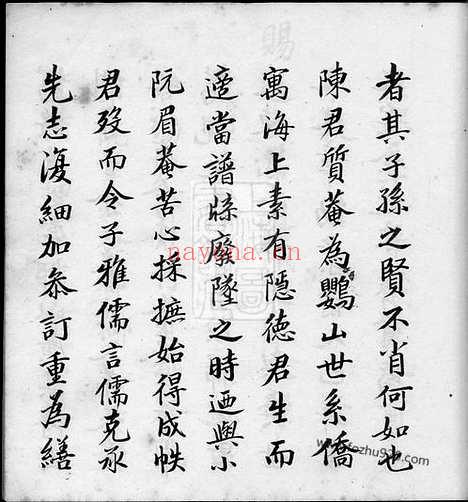 者其子孫之賢不肖何如也
陳君質菴為鸚山世系僑
寓海上素有隱德君生而
適當譜牒廢墜之時迺與小
阮眉菴苦心採摭始得成帙
君歿而令子雅儒言儒克承
先志復細加參訂重為繕
nayona.cn